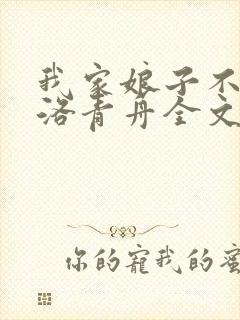 我家娘子不
洛青丹全文
你的寵我的蜜